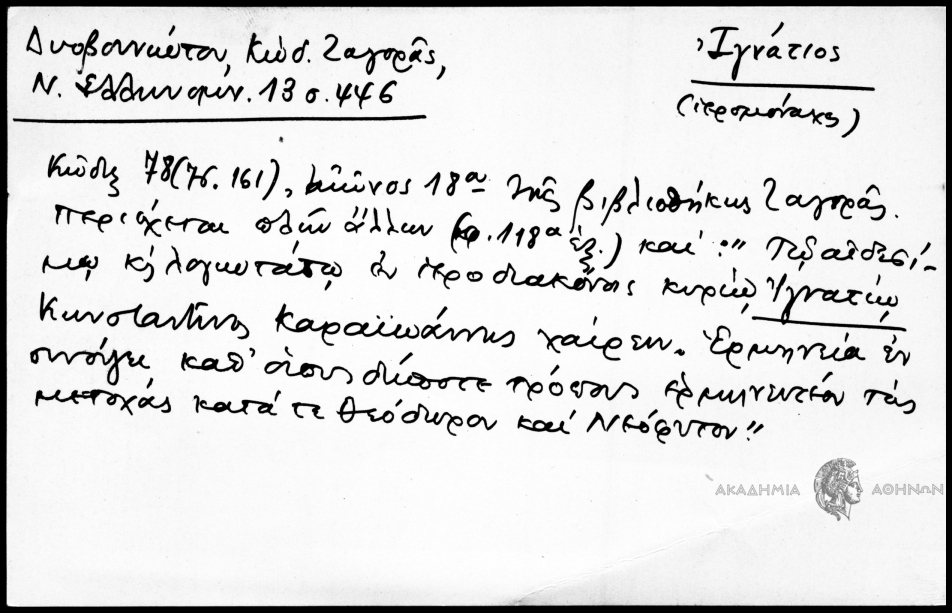 Δυοβουνιώτου, Κώδ. Ζαγορᾶς,
Ν. Ἑλληνομν. 13 σ. 446
Ἰγνάτιος
(ἱερομόναχος)
Κῶδιξ 78 (76. 161), αἰῶνος 18ου τῆς βιβλιοθήκης Ζαγορᾶς.
περιέχεται πλὴν ἄλλων (φ. 118α ἑξ.) καί: "Τῷ αἰδεσί-
μῳ κ λογιωτάτῳ ἐν ἱεροδιακόνοις κυρίῳ Ἰγνατίῳ
Κωνσταντῖνος Καραϊωάννης χαίρειν. Ἑρμηνεία ἐν
συνόψει καθ' οἵους δήποτε τρόπους ἑρμηνευτέον τὰς
μετοχάς κατά τε Θεόδωρον καὶ Νεόφυτον"
ΑΚΑΔΗΜΙΑ ΑΘΗΝΩΝ